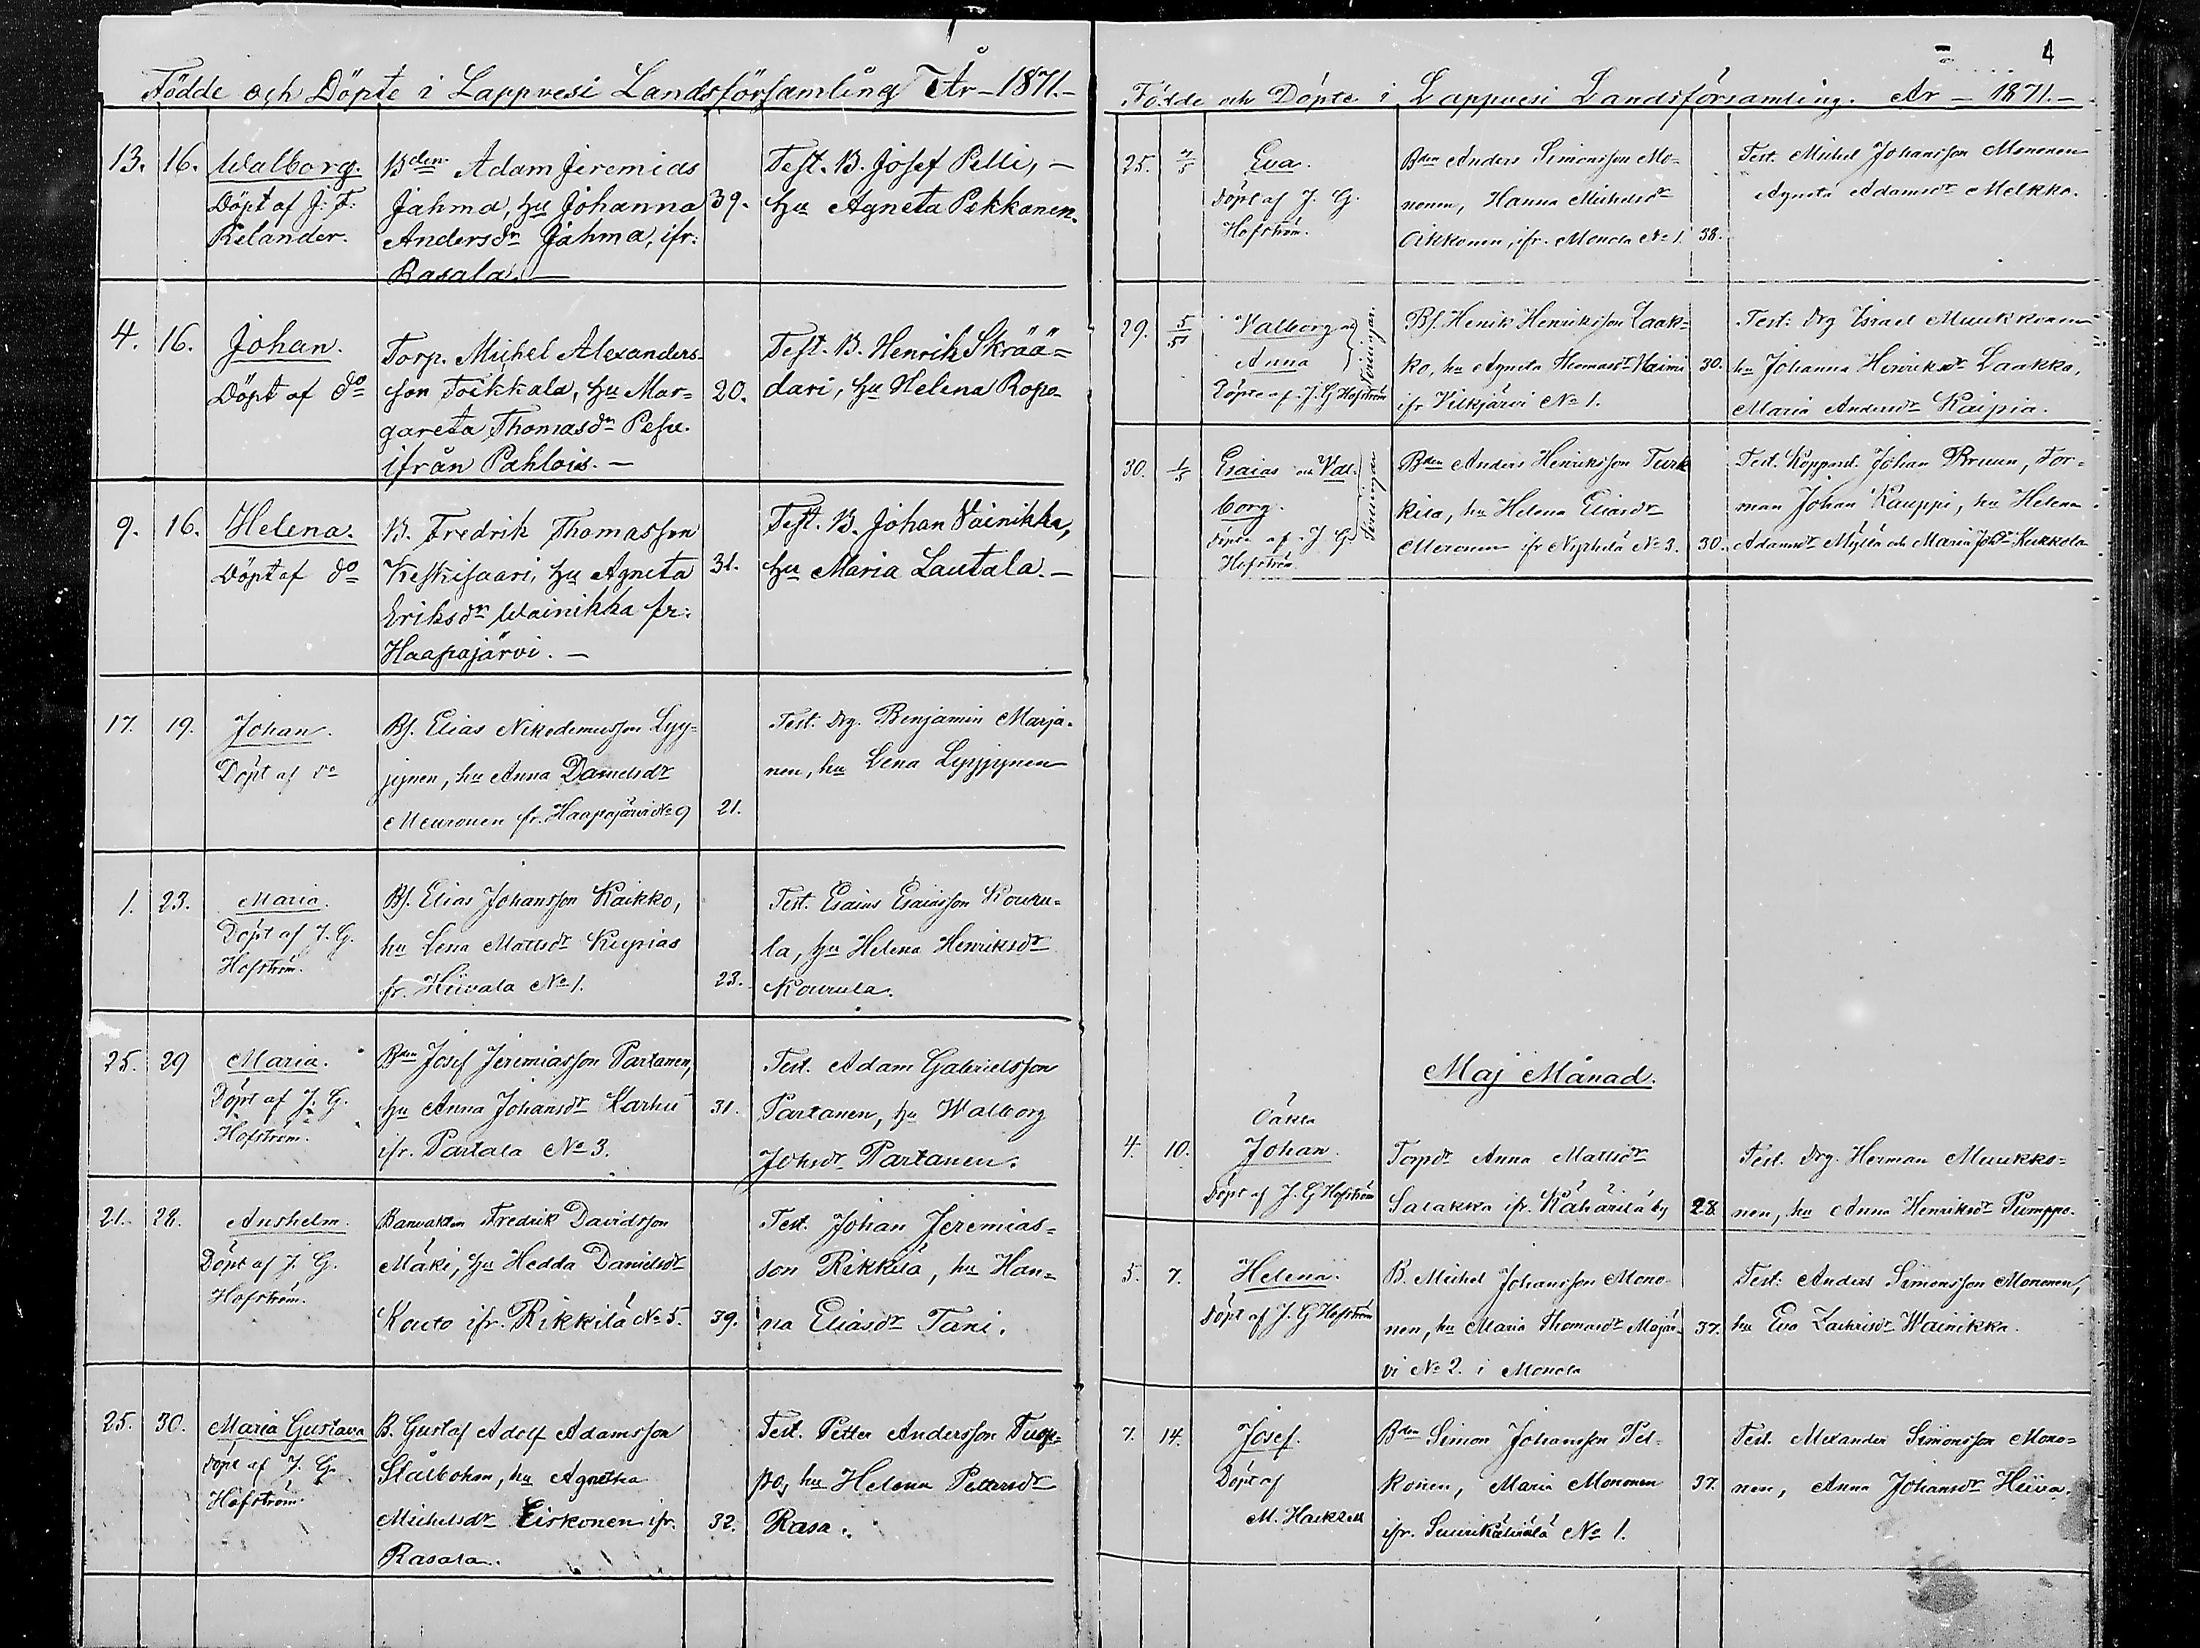 Födde och Döpte i Lappvesi Landsförsamling År - 1871. -
13. 16. Walborg. Bden Adam Jeremias Test. B. Josef Pelli, -
Döpt af J: F: Jähmä, hu Johanna 39. hu Agneta Pekkonen.
Relander. Andersdr Jähmä, ifr:
Rasala. -
4. 16. Johan. Torp. Michel Alexanders- Test. B. Henrik Skrää=
Döpt af do son Toikkala, hu Mar= 20. dari, hu Helena Ropo
gareta Thomasdr Pesu.
ifrån Pahlois. -
9. 16. Helena. B. Fredrik Thomasson Test. B. Johan Väinikka,
Döpt af do Keskisaari, hu Agneta 31. hu Maria Lautala. -
Eriksdr Wainikka fr:
Haapajärvi. -
17. 19. Johan. Bs. Elias Nikodemusson Lyy= Test. drg. Benjamin Marja-
Döpt af do jynen, hu Anna Danielsdr nen, hu Lena Lyyjynen
Meuronen fr. Haapajärvi No 9 21.
1. 23. Maria. Bs. Elias Johansson Kaikko, Test. Esaias Esaiasson Kouru=
Döpt af J. G. hu Lena Mattsdr Kupias la, hu Helena Henriksdr
Hofström. fr. Hiivala No 1. 23. Kourula.
25. 29 Maria. Bden Josef Jeremiasson Partanen, Test. Adam Gabrielsson
Döpt af J. G. hu Anna Johansdr Karhu 31. Partanen, hu Walborg
Hofström. ifr. Partala No 3. Johsdr Partanen.
21. 28. Anshelm. Banvakten Fredrik Davidsson Test. Johan Jeremias=
Döpt af J. G. Mäki, hu Hedda Danielsdr son Rikkilä, hu Han=
Hofström. Kouto ifr. Rikkilä No 5. 39. na Eliasdr Tani.
25. 30. Maria Gustava B. Gustaf Adolf Adamsson Test. Petter Andersson
Döpt af J. G. Stålbohm, hu Agnetha po, hu Helena Pettersdr
Hofström. Michelsdr Eiskonen ifr. 32. Rasa.
Rasala.
4
Födde och Döpte i Lappvesi Landsförsamling. År - 1871. -
25. Eva. Bden Anders Simonsson Mo= Test. Michel Johansson Mononen
Döpt af J. G. nonen, Hanna Michelsdr Agneta Adamsdr Melkko.
Hofström. Oikkonen, ifr. Monola No 1. 38.
29. 5/5 Valborg och Bs. Henrik Henriksson Laak= Test: drg Israel Muukkonen
Anna Tvillingar. ko, hu Agneta Thomasdr 30. hu Johanna Henriksdr Laakko,
Döpte af J. G Hofström ifr Vilkjärvi No 1. Maria Andersdr Kaipia.
30. 1/5 Esaias och Val= Bden Anders Henriksson Turk Test. Johan Bruun, For=
borg. Tvillingar kila, hu Helena Eliasdr man Johan Kauppi, hu Helena
Döpta af J G Meronen ifr No 3. 30. Adamsdr Myllä och Maria Johdr Kukkola
Hofström
Maj Månad.
Oäkta
4. 10. Johan. Torpdr Anna Mattsdr Test. drg. Herman Muukko=
Döpt af J. G Hofström Salakka ifr. Kähärilä by 28. nen, hu Anna Henriksdr Pumppo.
5. 7. Helena. B. Michel Johansson Mono- Test: Anders Simonsson Mononen,
Döpt af J. G Hofström nen, hu Maria Thomasdr Majär- 37. hu Eva Zachrisdr Wainikka.
vi No 2. i Monola
7. 14. Josef. Bden Simon Johansson Pel- Test. Alexander Simonsson Mono=
Döpt af konen, Maria Mononen 37. nen, Anna Johansdr Hiiva.
M. Hackzell ifr. No 1.